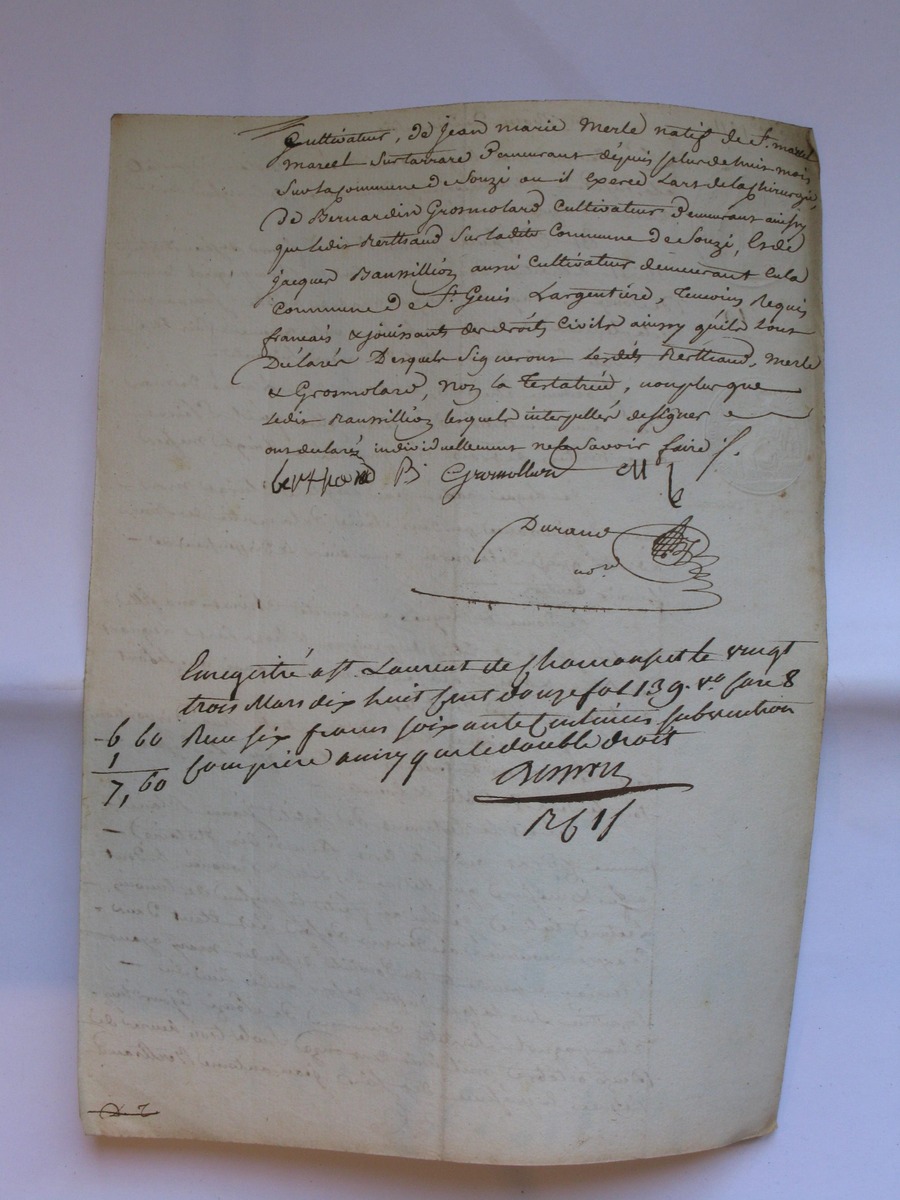 Cultivateur, de jean marie Merle natif de St. marcel
marcel Sur tarrare Demeurant depuis plus de huit mois
Sur la Commune de Souzi ou il exerce L'art de la Chirurgie,
de Bernardin Grosmolard Cultivateur demeurant ainsy
que ledit Berthaud Sur ladite Commune de Souzi, & de
jacques Baussillion aussi Cultivateur demeurant en la
Commune de St. Genis Largentière, temoins Requis
francais & jouissants des droits Civils ainsy qu'ils l'ont
Déclaré Desquels Signeront lesdits Berthaud, Merle
& Grosmolard, Non la Testatrice, non plus que
ledit Baussillion lesquels interpellés de signer
ont declaré individuellement ne le Savoir faire /.
B. Gromollard
Durand
nore
Enregistré a St. Laurent de Chamousset le vingt
trois Mars dix huit cent douze fol 139 vo Case 8
Reçu six francs soixante Centimes subvention
Comprise ainsy que le double droit
6 60
1
7,60